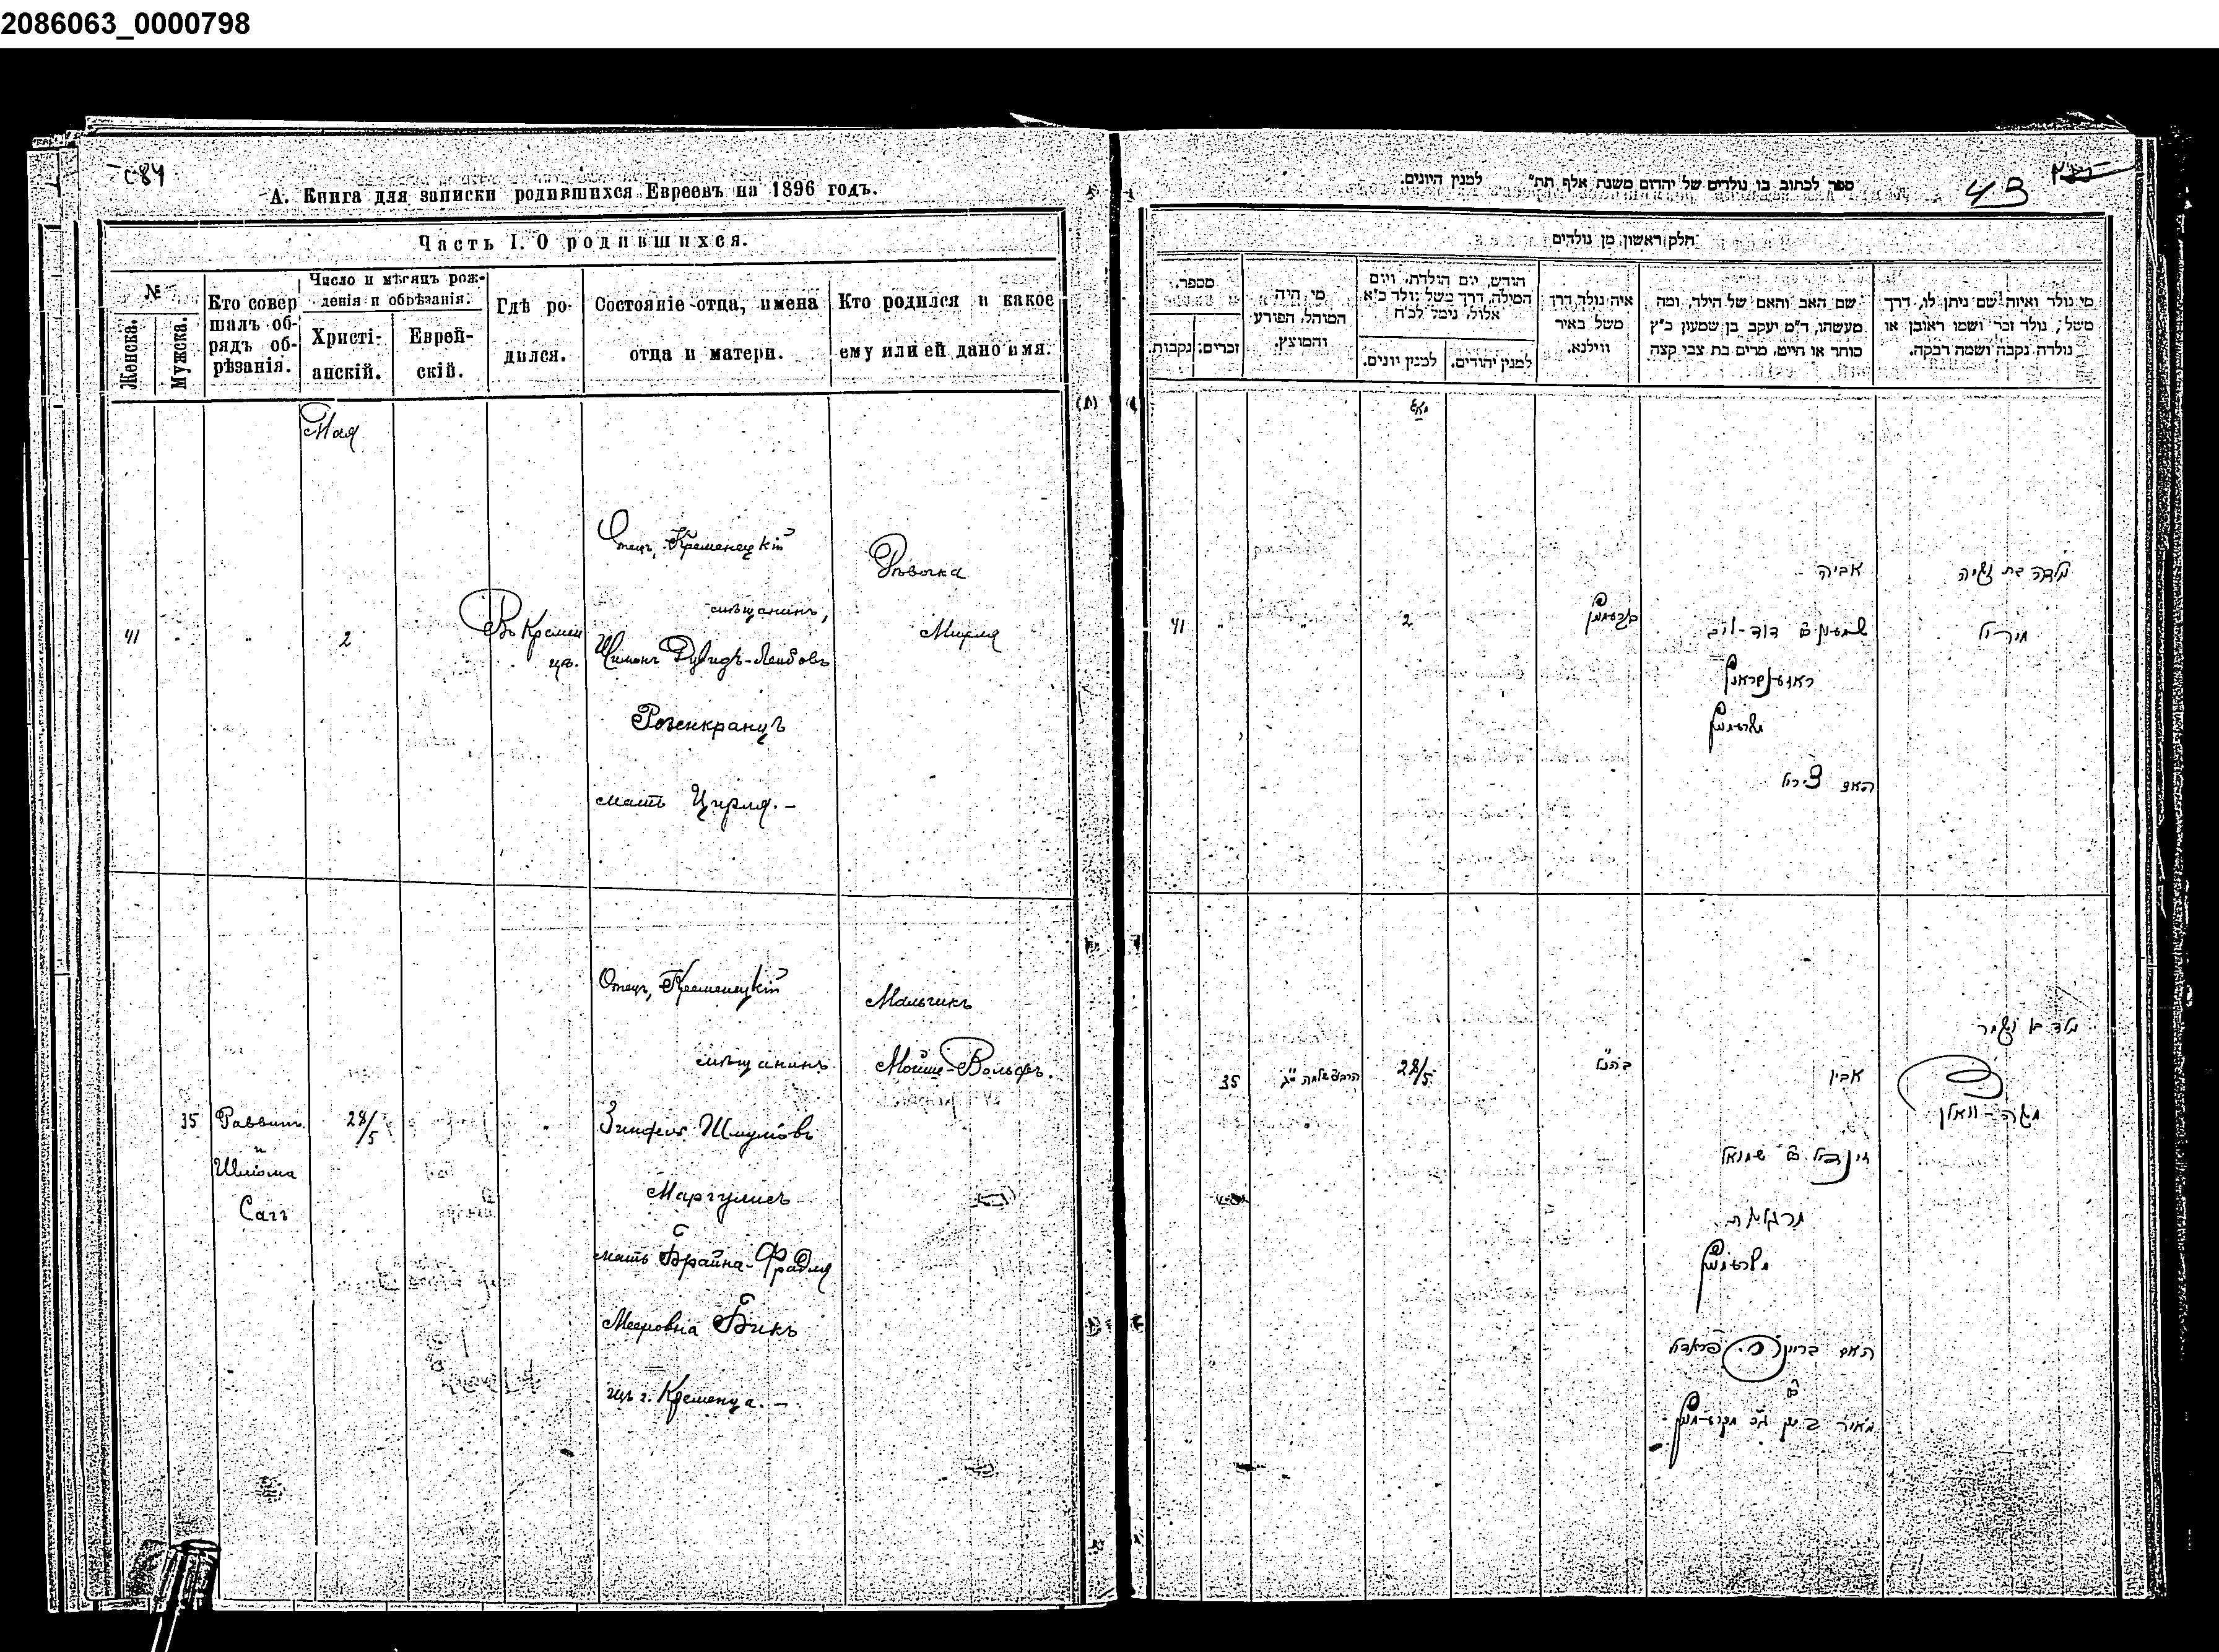 2086063_0000798
с84
А. Книга для записки родившихся Евреевъ на 1896 годъ.
Часть I. О родившихся.
№
Женска.
Мужска.
Кто совершалъ обрядъ обрѣзанія.
Число и мѣсяцъ рожденія и обрѣзанія.
Христіанскій.
Еврейскій.
Гдѣ родился.
Состояніе отца, имена отца и матери.
Кто родился и какое ему или ей дано имя.
Мая
41
2
Въ Кремен
цѣ.
Отецъ, Кременецкій
мѣщанинъ,
Шимонъ Дувидъ-Лейбовъ
Розенкранцъ
мать Цирля.-
Дѣвочка
Мирля
35
Раввинъ
и
Шлiома
Сагъ
28/5
"
Отецъ, Кременецкій
мѣщанинъ
Зинфель Шмулiовъ
Маргулисъ
мать Брайна-Фрадля
Мееровна Бикъ
изъ г. Кременца.-
Мальчикъ
Мойше-Вольфъ.
ספר לכתוב בו נולדים של יהדום משנת אלף תת" למנין היונים.
43
חלק ראשון מן נולדים
מספר.
נקבות
זכרים:
מי היה המוהל, הפורע והמוצץ.
חודש, יום הולדת, ויום המילה, דרך משל נולד כ"א אלול, נימל לכ"ח
למנין יונים.
למנין יהודים.
איה נולד דרך משל באיר ווילנא.
שם האב והאם של הילד, ומה מעשהו, ד"מ יעקב בן שמעון כ"ץ סוחר או חייט, מרים בת צבי קצה
מי נולד ואיזה שם ניתן לו, דרך משל, נולד זכר ושמו ראובן או נולדה נקבה ושמה רבקה.
41
2
אביה
שמעון ב דוד-ליב
האם צירל
מירל
35
28/5
אביו
זינדיל ב שמואל
מרגליות
האם בריינ פראדיל
משה-וואלף